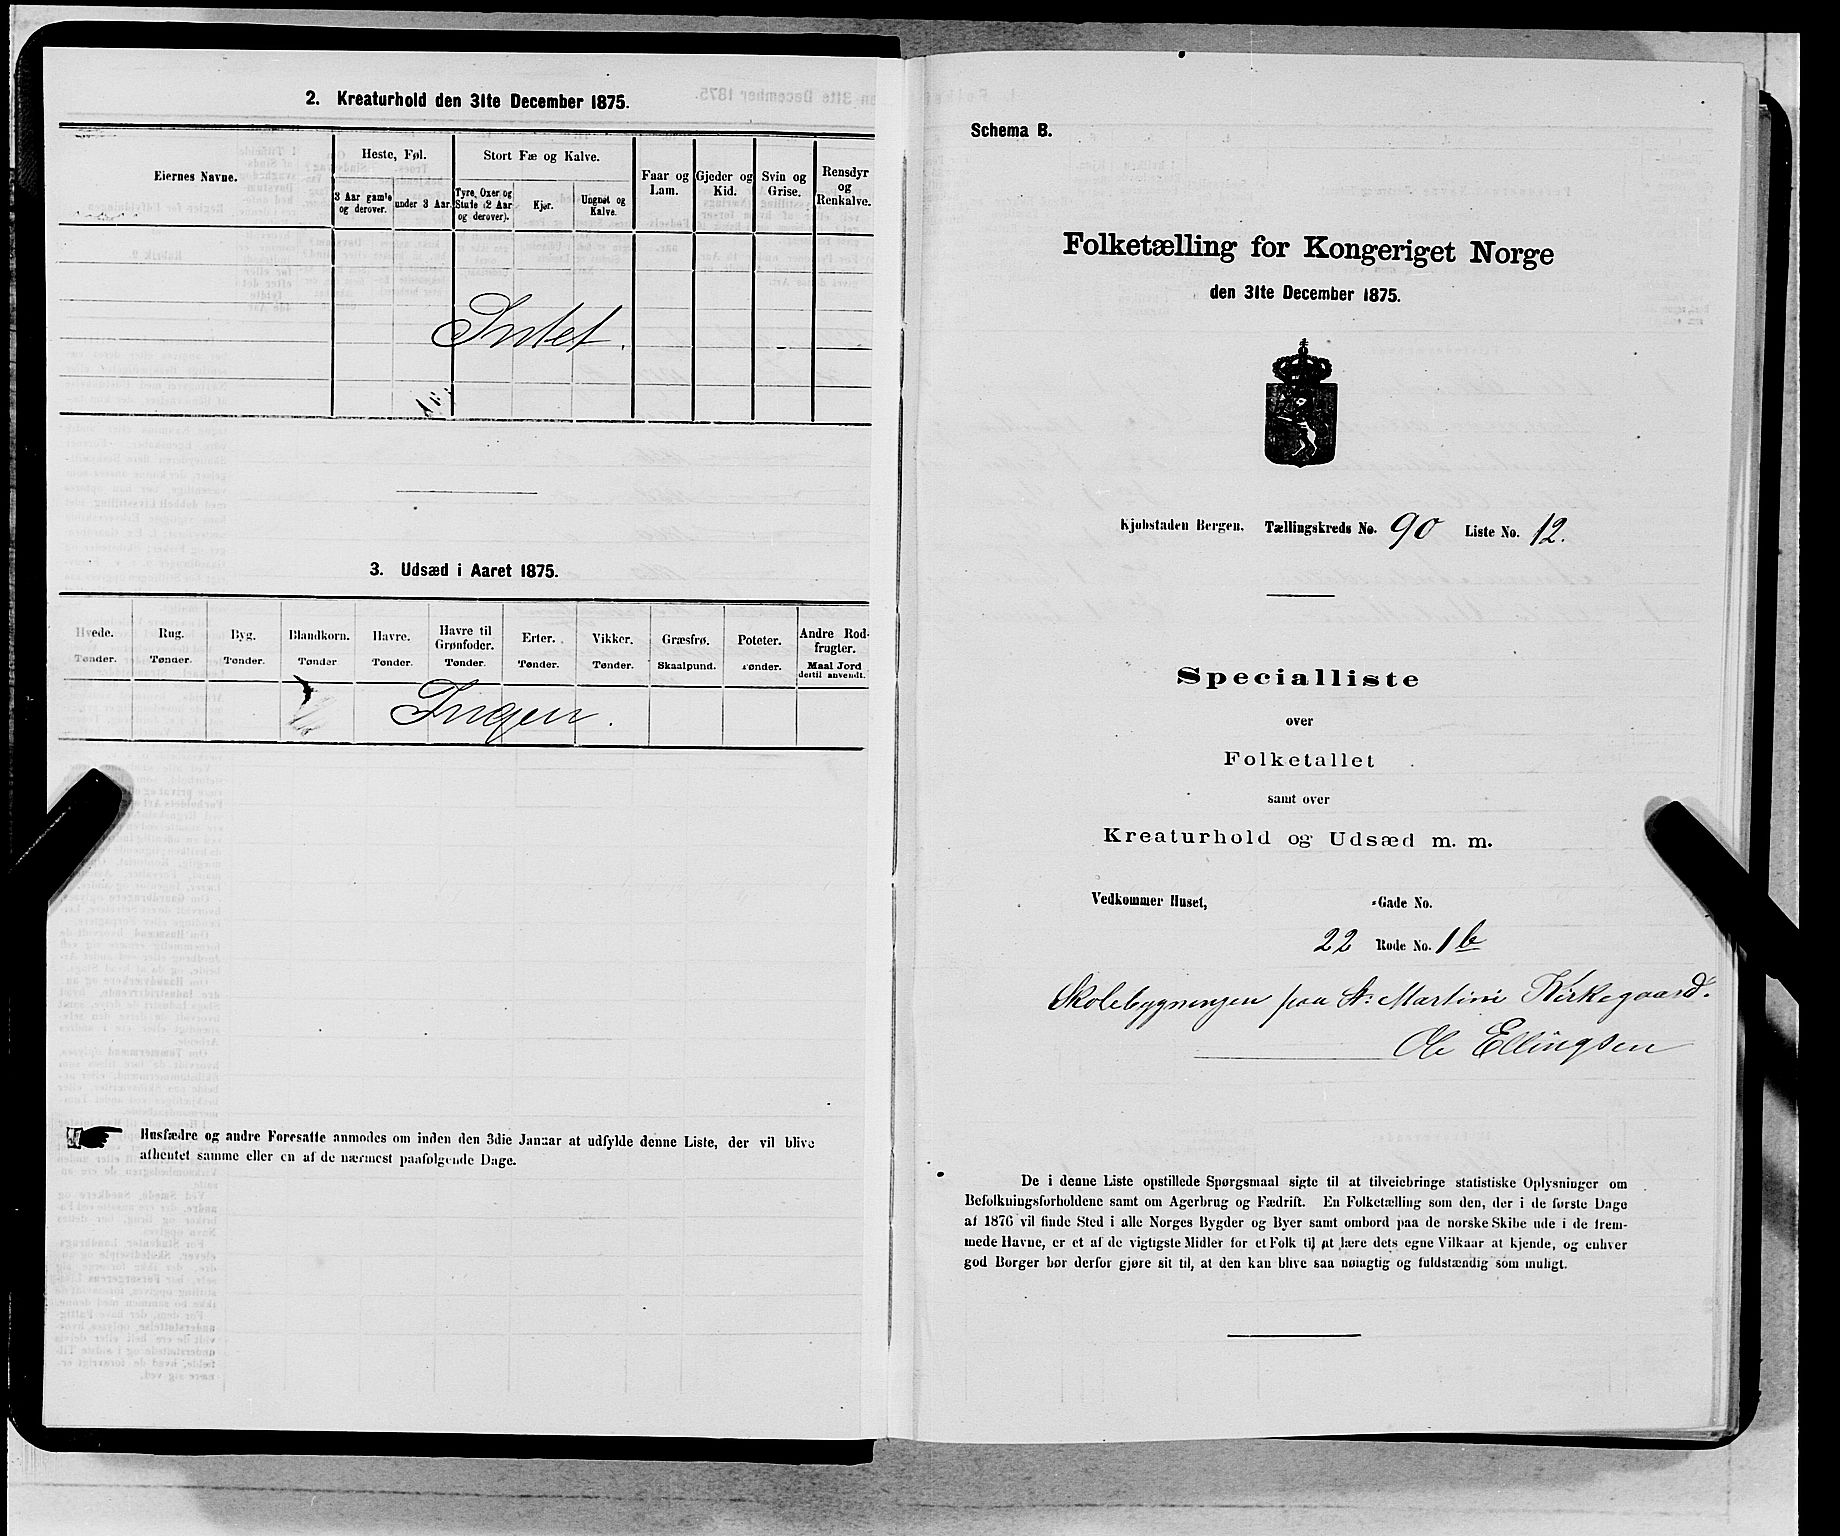 2. Kreaturhold den 31te December 1875.
Eiernes Navne.
Heste, Føl.
Stort Fæ og Kalve.
Faar og Lam.
Gjeder og Kid.
Svin og Grise.
Rensdyr og Renkalve.
3 Aar gamle og derover.
under 3 Aar.
Tyre, Oxer og Stude (2 Aar og derover).
Kjør.
Ungnøt og Kalve.
Intet.
3. Udsæd i Aaret 1875.
Hvede. Rug. Byg. Blandkorn. Havre. Havre til Grønfoder. Erter. Vikker. Græsfrø. Poteter. Andre Rodfrugter.
Tønder. Tønder. Tønder. Tønder Tønder. Tønder. Tønder. Tønder. Skaalpund. Tønder. Maal Jord dertil anvendt.
Ingen.
Husfædre og andre Foresatte anmodes om inden den 3die Januar at udfylde denne Liste, der vil blive
afhentet samme eller en af de nærmest paafølgende Dage.
Schema B.
Folketælling for Kongeriget Norge
den 31te December 1875.
Kjøbstaden Bergen. Tællingskreds No. 90 Liste No. 12.
Specialliste
over
Folketallet
samt over
Kreaturhold og Udsæd m. m.
Vedkommer Huset, -Gade No.
22 Rode No. 1b
Skolebygningen paa St. Martini Kirkegaard.
Ole Ellingsen
De i denne Liste opstillede Spørgsmaal sigte til at tilveiebringe statistiske Oplysninger om
Befolkningsforholdene samt om Agerbrug og Fædrift. En Folketælling som den, der i de første Dage
af 1876 vil finde Sted i alle Norges Bygder og Byer samt ombord paa de norske Skibe ude i de frem-
mede Havne, er et af de vigtigste Midler for et Folk til at lære dets egne Vilkaar at kjende, og enhver
god Borger bør derfor gjøre sit til, at den kan blive saa nøiagtig og fuldstændig som muligt.